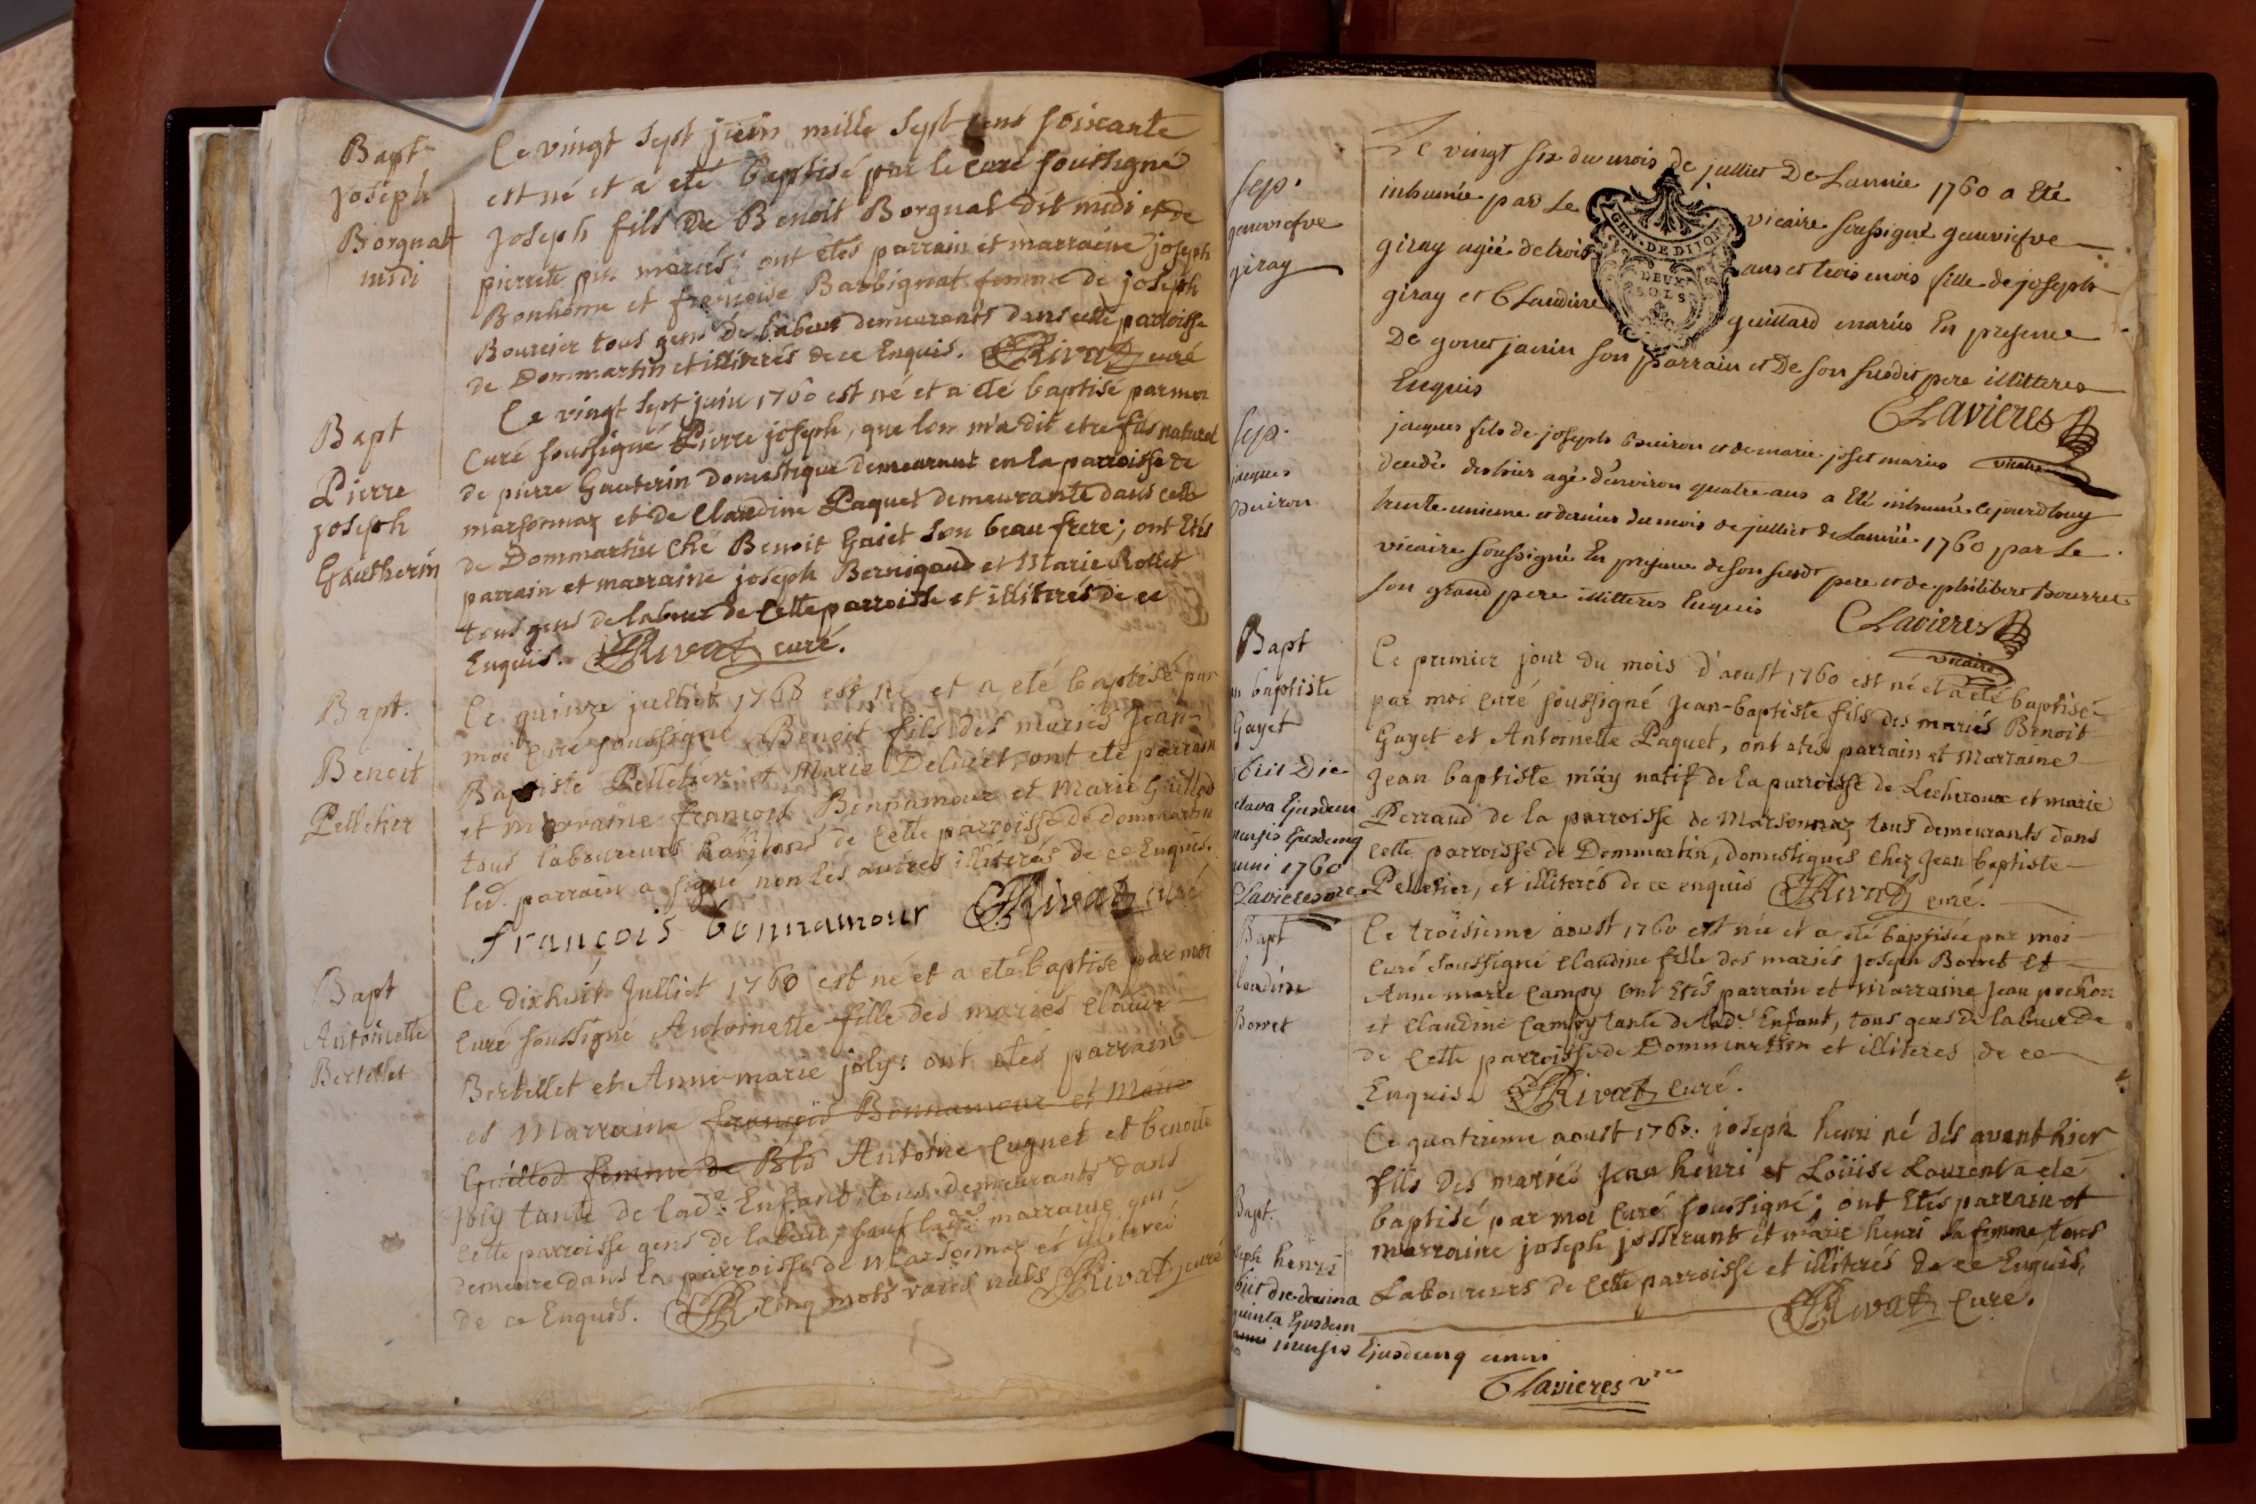 Bapt
joseph
Borgnat
midi
Ce vingt sept juin mille sept cens soixante
est né et a eté baptisé par le curé soussigné
joseph fils de Benoit Borgnat dit midi et de
pierrette mariés; ont étés parrain et marraine joseph
Bonhome et françoise Barbignat femme de joseph
Bourcier tous gens de labeur demeurants dans cette parroisse
de Dommartin et illiterés de ce Enquis. Rivat curé
Bapt
Pierre
joseph
Gautherin
Ce vingt sept juin 1760 est né et a eté baptisé par moi
Curé soussigné Pierre joseph, que lon m'a dit etre fils naturel
de pierre Gauterin Domestique demeurant en la parroisse de
marsonnaz et de Claudine Paquet demeurante dans cette
de Dommartin ché Benoit Gaiet son beau frere; ont Etés
parrain et marraine joseph Bernigaud et Marie Rollet
tous gens de labeur de Cette parroisse et illiterés de ce
Enquis. Rivat curé.
Bapt.
Benoit
Pelletier
Ce quinze julliet 1760 est né et a eté baptisé par
moi Curé soussigné Benoit fils des mariés Jean-
Baptiste Pelletier et Marie Deliset, ont eté parrain
et marraine françois Bonnamour et Marie Guillod
tous laboureurs habitans de Cette parroisse de dommartin
led. parrain a signé non les autres illiterés de ce Enquis.
françois bonnamour Rivat curé
Bapt
Antoinette
Bertillet
Ce dixhuit Julliet 1760 est né et a eté baptisé par moi
Curé soussigné Antoinette fille des mariés Claude
Bertillet et Anne-marie joly: ont etés parrain
et Marraine françois Bonnamour et Marie
Guillod femme de Antoine Cugnet et benoite
joly tante de lad.e Enfant, tous demeurants dans
Cette parroisse gens de labeur, sauf lad.e marraine qui
demeure dans la parroisse de Marsonnaz et illiterés
de ce Enquis. R Cinq mots raiés nuls Rivat curé
sep.
geneviefve
giray
Le vingt six du mois de julliet De Lannée 1760 a Eté
inhumée par Le vicaire soussigné geneviefve
giray agée de trois ans et trois mois fille de joseph
giray et Claudine guillard mariés En presence
De gonet janin son parrain et De son susdit pere illitteres
Enquis
Clavieres
vicaire
GEN. DE DIJON
DEUX
SOLS
sep.
jacques
Buiron
jacques fils de joseph Buiron et de marie joset mariés
decedé des hier agé d'environ quatre ans a Eté inhumé cejourdhuy
trente unieme et dernier du mois de julliet de Lannée 1760 par Le
vicaire soussigné En presence de son susdt pere et de philibert bourret
son grand pere illitteres Enquis
Clavieres
vicaire
Bapt
baptiste
Gayet
obiit Die
Ejusdem
mensis Ejusdemq
anni 1760
Clavieres vre
Ce premier jour du mois d'aoust 1760 est né et a eté baptisé
par moi curé soussigné Jean-baptiste fils des mariés Benoit
Gayet et Antoinette Paquet, ont etés parrain et Marraine
Jean baptiste may natif de la parroisse de Lecheroux et marie
Perraud de la parroisse de Marsonnaz tous demeurants dans
Cette parroisse de Dommartin, domestiques chez Jean baptiste
Pelletier, et illiterés de ce enquis Rivat curé.
Bapt
laudine
Borret
Ce troisieme aoust 1760 est née et a eté baptisée par moi
Curé soussigné Claudine fille des mariés joseph Borret et
Anne marie Campy ont Etés parrain et Marraine Jean pochon
et Claudine Campy tante de lad.e Enfant, tous gens de labeur de
de Cette parroisse de Dommartin et illiteres de ce
Enquis. Rivat curé.
Bapt.
seph henri
obiit die decima
quinta Ejusdem
mensis Ejusdemq anni
Clavieres vre
Ce quatrieme aoust 1760. joseph henri né dés avant hier
fils des mariés Jean henri et Loüise Laurent a eté
baptisé par moi Curé soussigné; ont Etés parrain et
marraine joseph josserant et marie henri sa femme, tous
Laboureurs de Cette parroisse et illiterés de ce Enquis.
Rivat Curé.